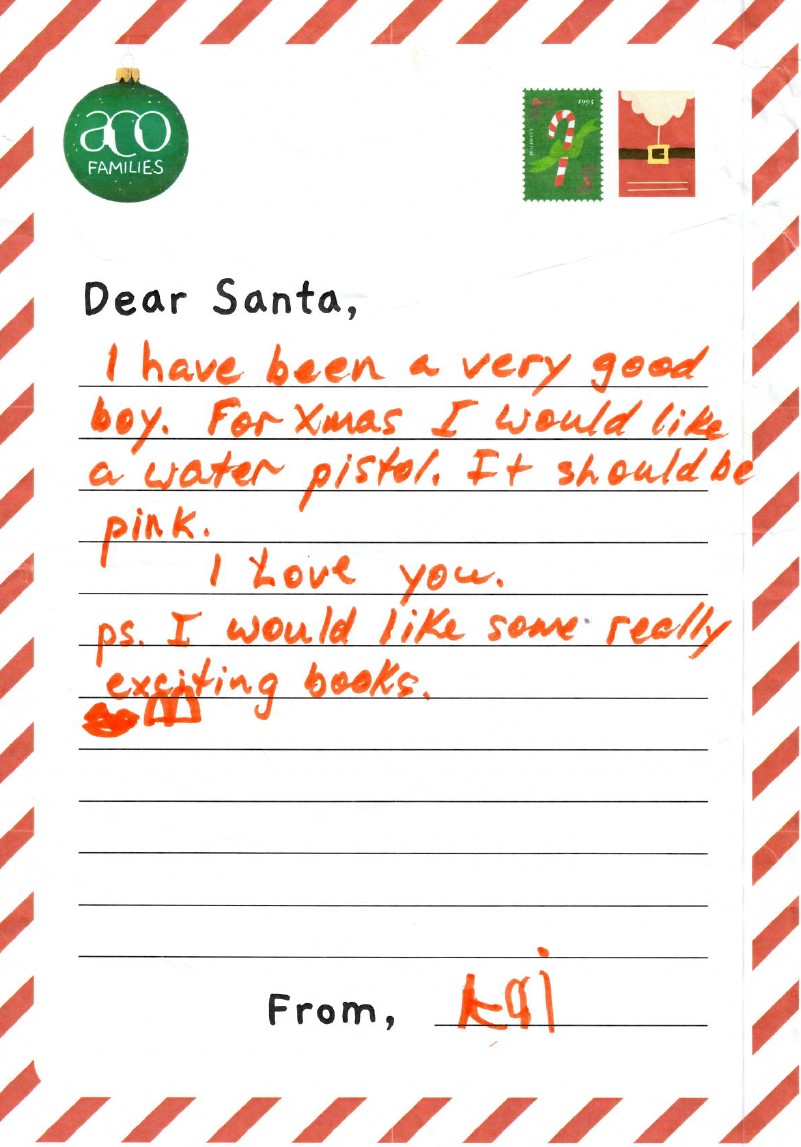 aco
FAMILIES
1995
Dear Santa,
I have been a very good
boy. For Xmas I would like
a water pistol. It should be
pink.
I Love you.
ps. I would like some really
exciting books.
From, Kai